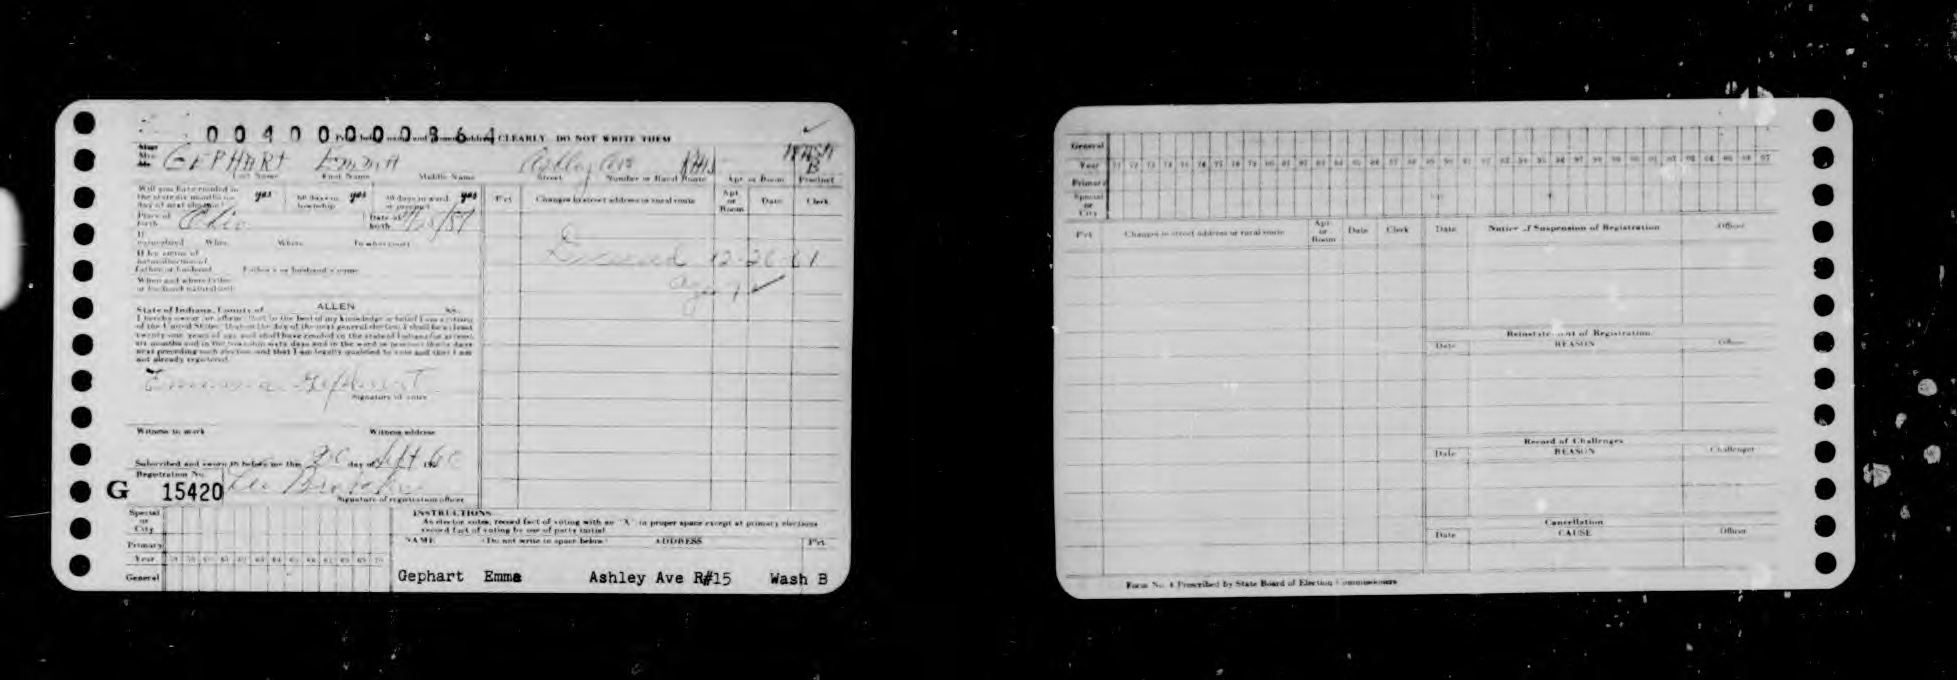 0040000864
Print below name and home address CLEARLY DO NOT WRITE THEM
GEPHART Emma Ashley Ave WASH
B
Last Name First Name Middle Name Street Number or Rural Route Apt. or Room Precinct
Will you have resided in
the state six months on
day of next election? yes 60 days in
township yes 30 days in ward
or precinct yes
Prct Changes in street address or rural route Apt.
or
Room Date Clerk
Place of
birth Ohio Date of
birth
If
naturalized When Where To what court
If by virtue of
naturalization of
father or husband Father's or husband's name
When and where father
or husband naturalized
Deceased 12-26-61
age
State of Indiana, County of ALLEN SS.
I hereby swear (or affirm) that to the best of my knowledge or belief I am a citizen
of the United States, that on the day of the next general election, I shall be at least
twenty-one years of age and shall have resided in the state of Indiana for at least
six months and in the township sixty days and in the ward or precinct thirty days
next preceding such election and that I am legally qualified to vote and that I am
not already registered.
Emma Gephart
Signature of voter
Witness to mark Witness address
Subscribed and sworn to before me this day of Sept 60
Registration No.
G 15420
Signature of registration officer
Special
or
City
Primary
Year 58 59 60 61 62 63 64 65 66 67 68 69 70
General
INSTRUCTIONS
As elector votes, record fact of voting with an "X" in proper space except at primary elections
record fact of voting by use of party initial.
NAME (Do not write in space below) ADDRESS Prct
Gephart Emma Ashley Ave R#15 Wash B
General
Year 71 72 73 74 75 76 77 78 79 80 81 82 83 84 85 86 87 88 89 90 91 92 93 94 95 96 97 98 99 00 01 02 03 04 05 06 07
Primary
Special
or
City
Prct Changes in street address or rural route Apt
or
Room Date Clerk Date Notice of Suspension of Registration Officer
Reinstatement of Registration
Date REASON Officer
Record of Challenges
Date REASON Challenger
Cancellation
Date CAUSE Officer
Form No. 4 Prescribed by State Board of Election Commissioners